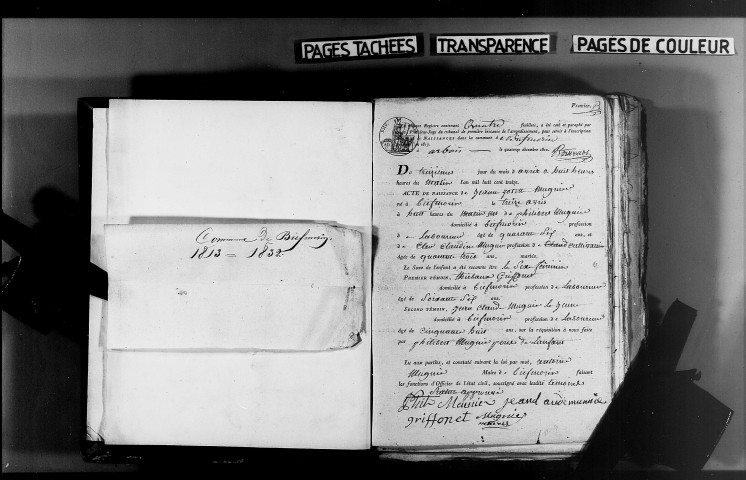 PAGES TACHÉES TRANSPARENCE PAGES DE COULEUR
Commune de Biefmorin.
1813 = 1832
Premier.
Registre contenant feuillets, a été coté et paraphé par
Juge du tribunal de première instance de l'arrondissement, pour servir à l'inscription
NAISSANCES dans la commune d
à arbois le quatorze décembre
Du treizieme jour du mois d'avril a huit heures
heures du matin l'an mil huit cent treize.
ACTE DE NAISSANCE de Mugnier
né à biefmorin le treize avril
à huit heures du matin de philibert Mugnier
domicilié à biefmorin profession
de Laboureur âgé de quarante ans, et
de Claudine Mugnier profession de
Agés de quarante trois ans, mariés.
Le Sexe de l'enfant a été reconnu être le Sexe féminin
PREMIER TÉMOIN, Griffonet
domicilié à biefmorin profession de Laboureur
âgé de Soixante ans.
SECOND TÉMOIN, Jean Claude Mugnier le jeune
domicilié à biefmorin profession de Laboureur
âgé de cinquante huit ans, sur la réquisition à nous faite
par philibert Mugnier pere de l'enfant
Et constaté suivant la loi par moi, antoine
Mugnier Maire de biefmorin faisant
les fonctions d'Officier de l'état civil, soussigné avec
approuvé
Phil Munier jean claude munnie
griffonet Mugnier
maire